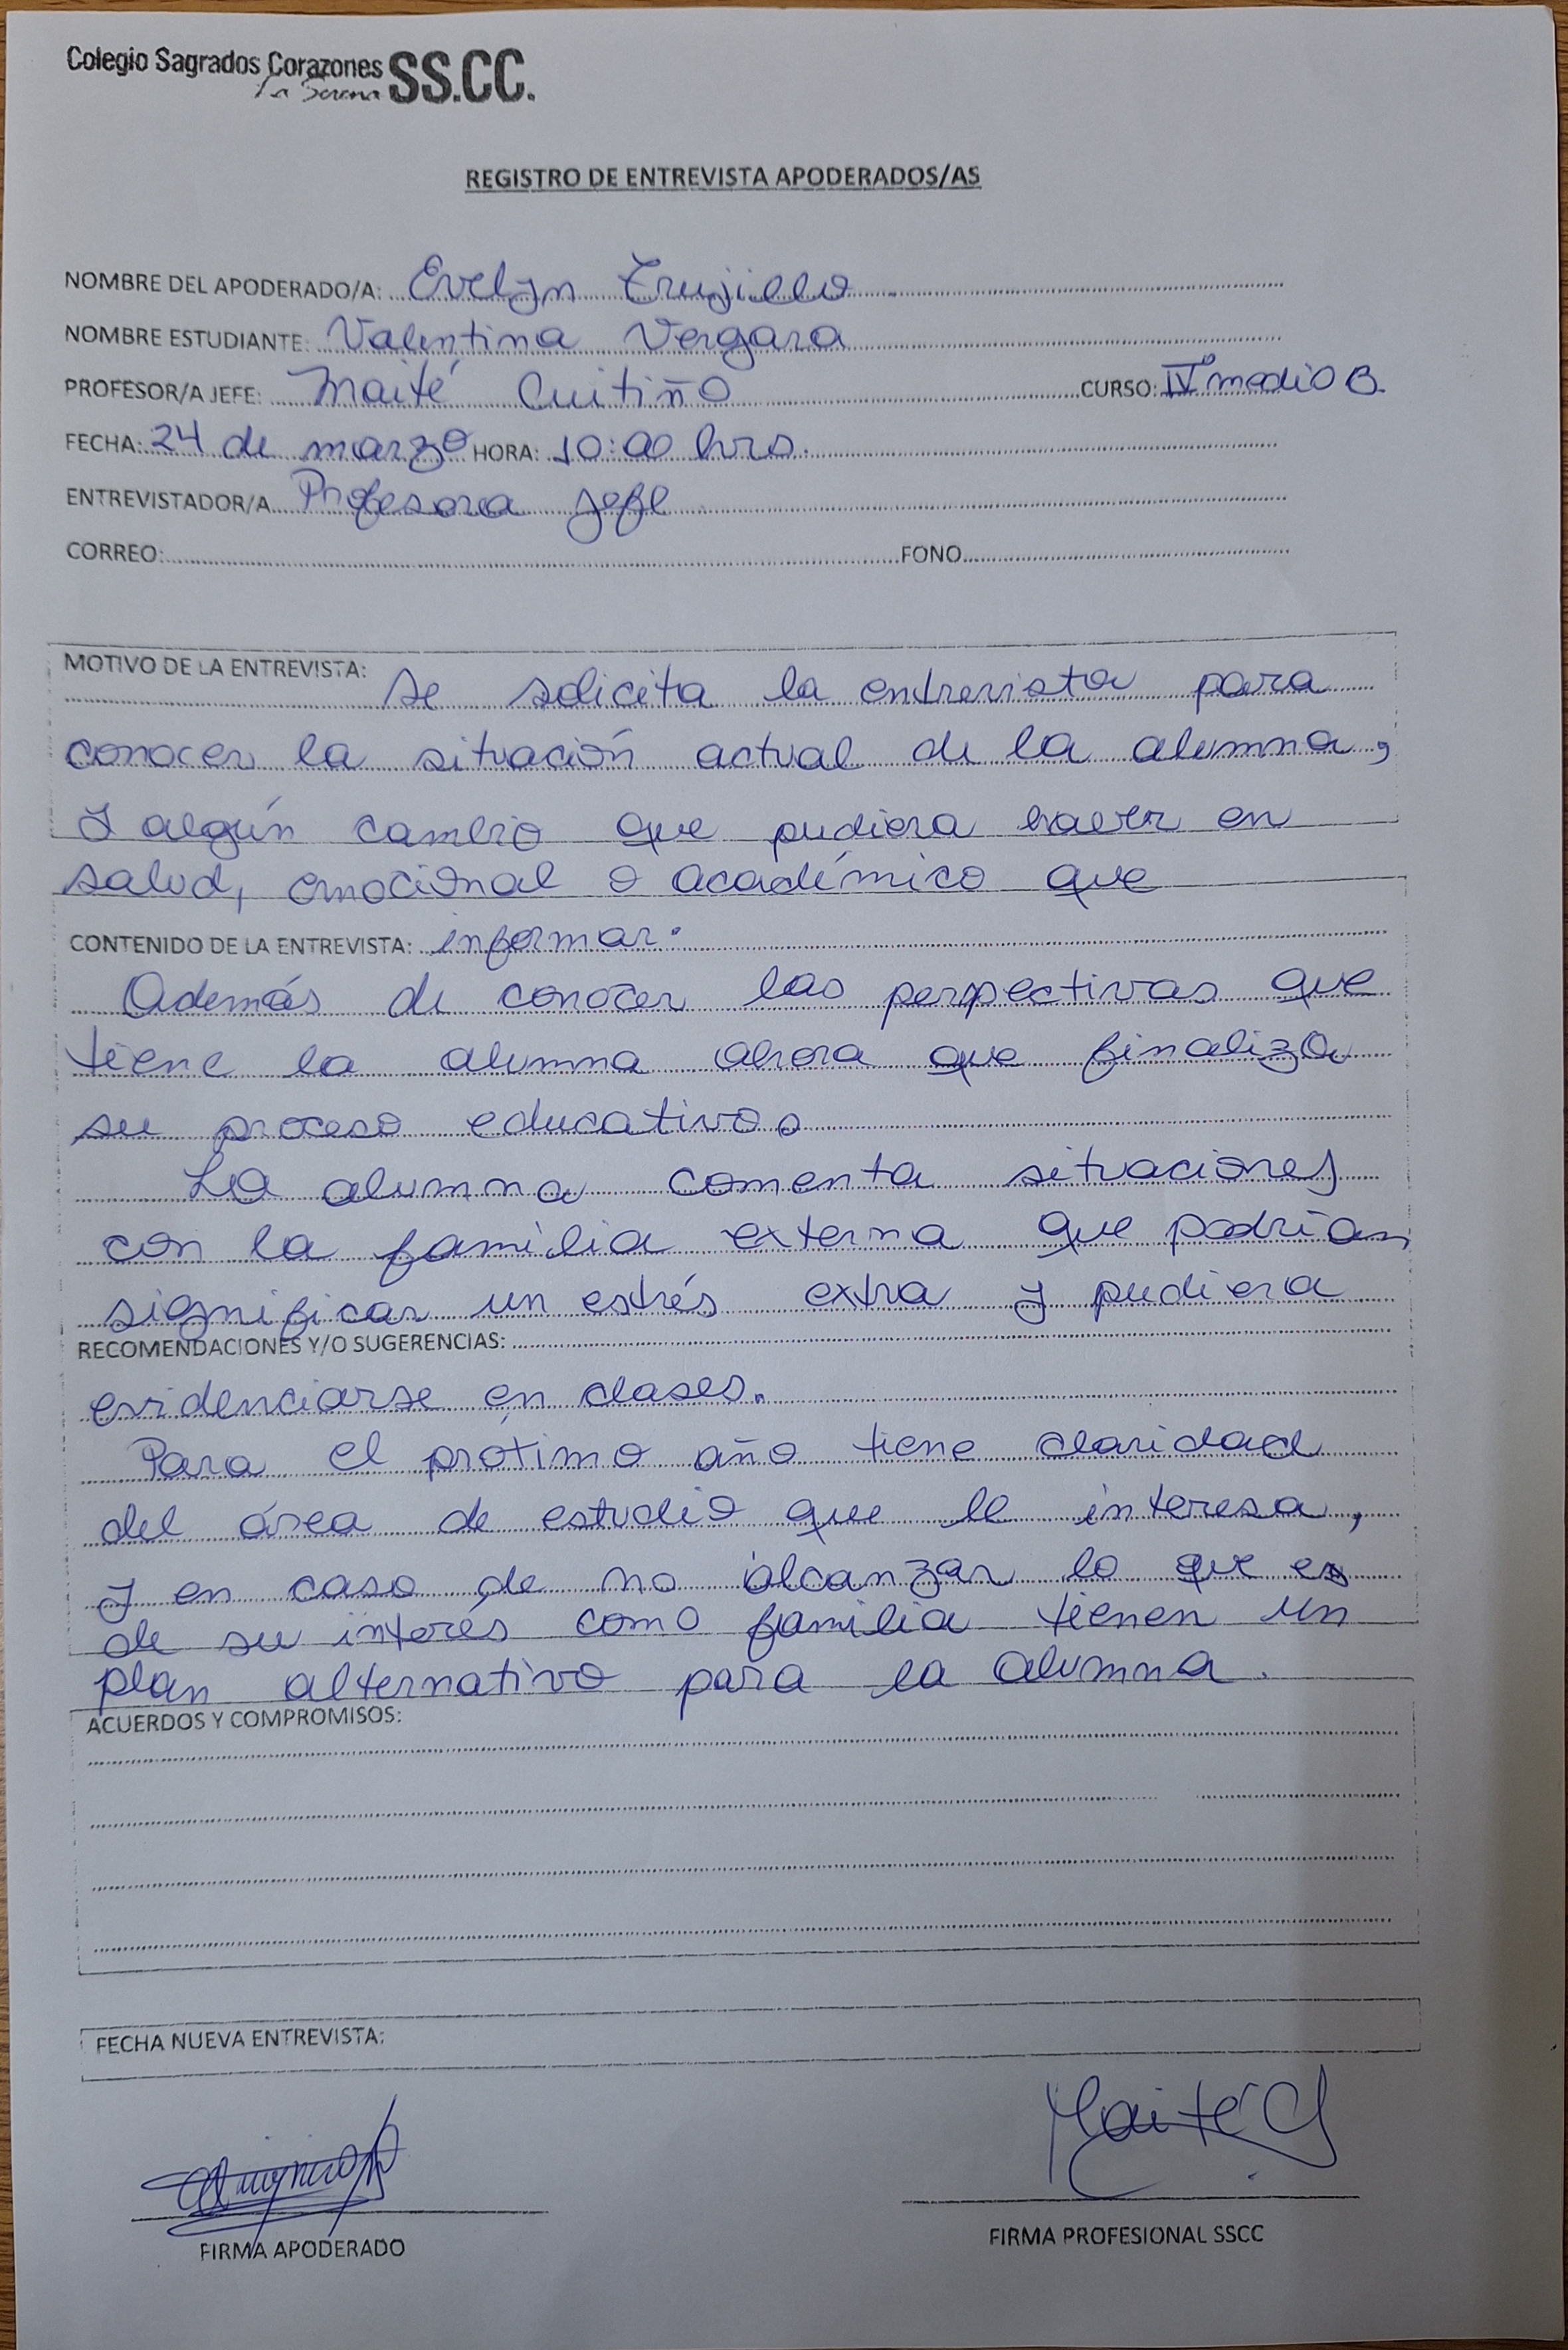 Colegio Sagrados Corazones SS.CC.
La Serena
REGISTRO DE ENTREVISTA APODERADOS/AS
NOMBRE DEL APODERADO/A: Evelyn Trujillo
NOMBRE ESTUDIANTE: Valentina Vergara
PROFESOR/A JEFE: Maité Cuitiño CURSO: IVº medio B.
FECHA: 24 de marzo HORA: 10:00 hrs.
ENTREVISTADOR/A Profesora jefe
CORREO: FONO
MOTIVO DE LA ENTREVISTA: Se solicita la entrevista para
conocer la situación actual de la alumna,
y algún cambio que pudiera haber en
salud, emocional o académico que
CONTENIDO DE LA ENTREVISTA: informar.
Además de conocer las perspectivas que
tiene la alumna ahora que finaliza
su proceso educativo.
La alumna comenta situaciones
con la familia externa que podrían
significar un estrés extra y pudiera
RECOMENDACIONES Y/O SUGERENCIAS:
evidenciarse en clases.
Para el próximo año tiene claridad
del área de estudio que le interesa,
y en caso de no alcanzar lo que es
de su interés como familia tienen un
plan alternativo para la alumna.
ACUERDOS Y COMPROMISOS:
FECHA NUEVA ENTREVISTA:
Maité C
FIRMA APODERADO FIRMA PROFESIONAL SSCC